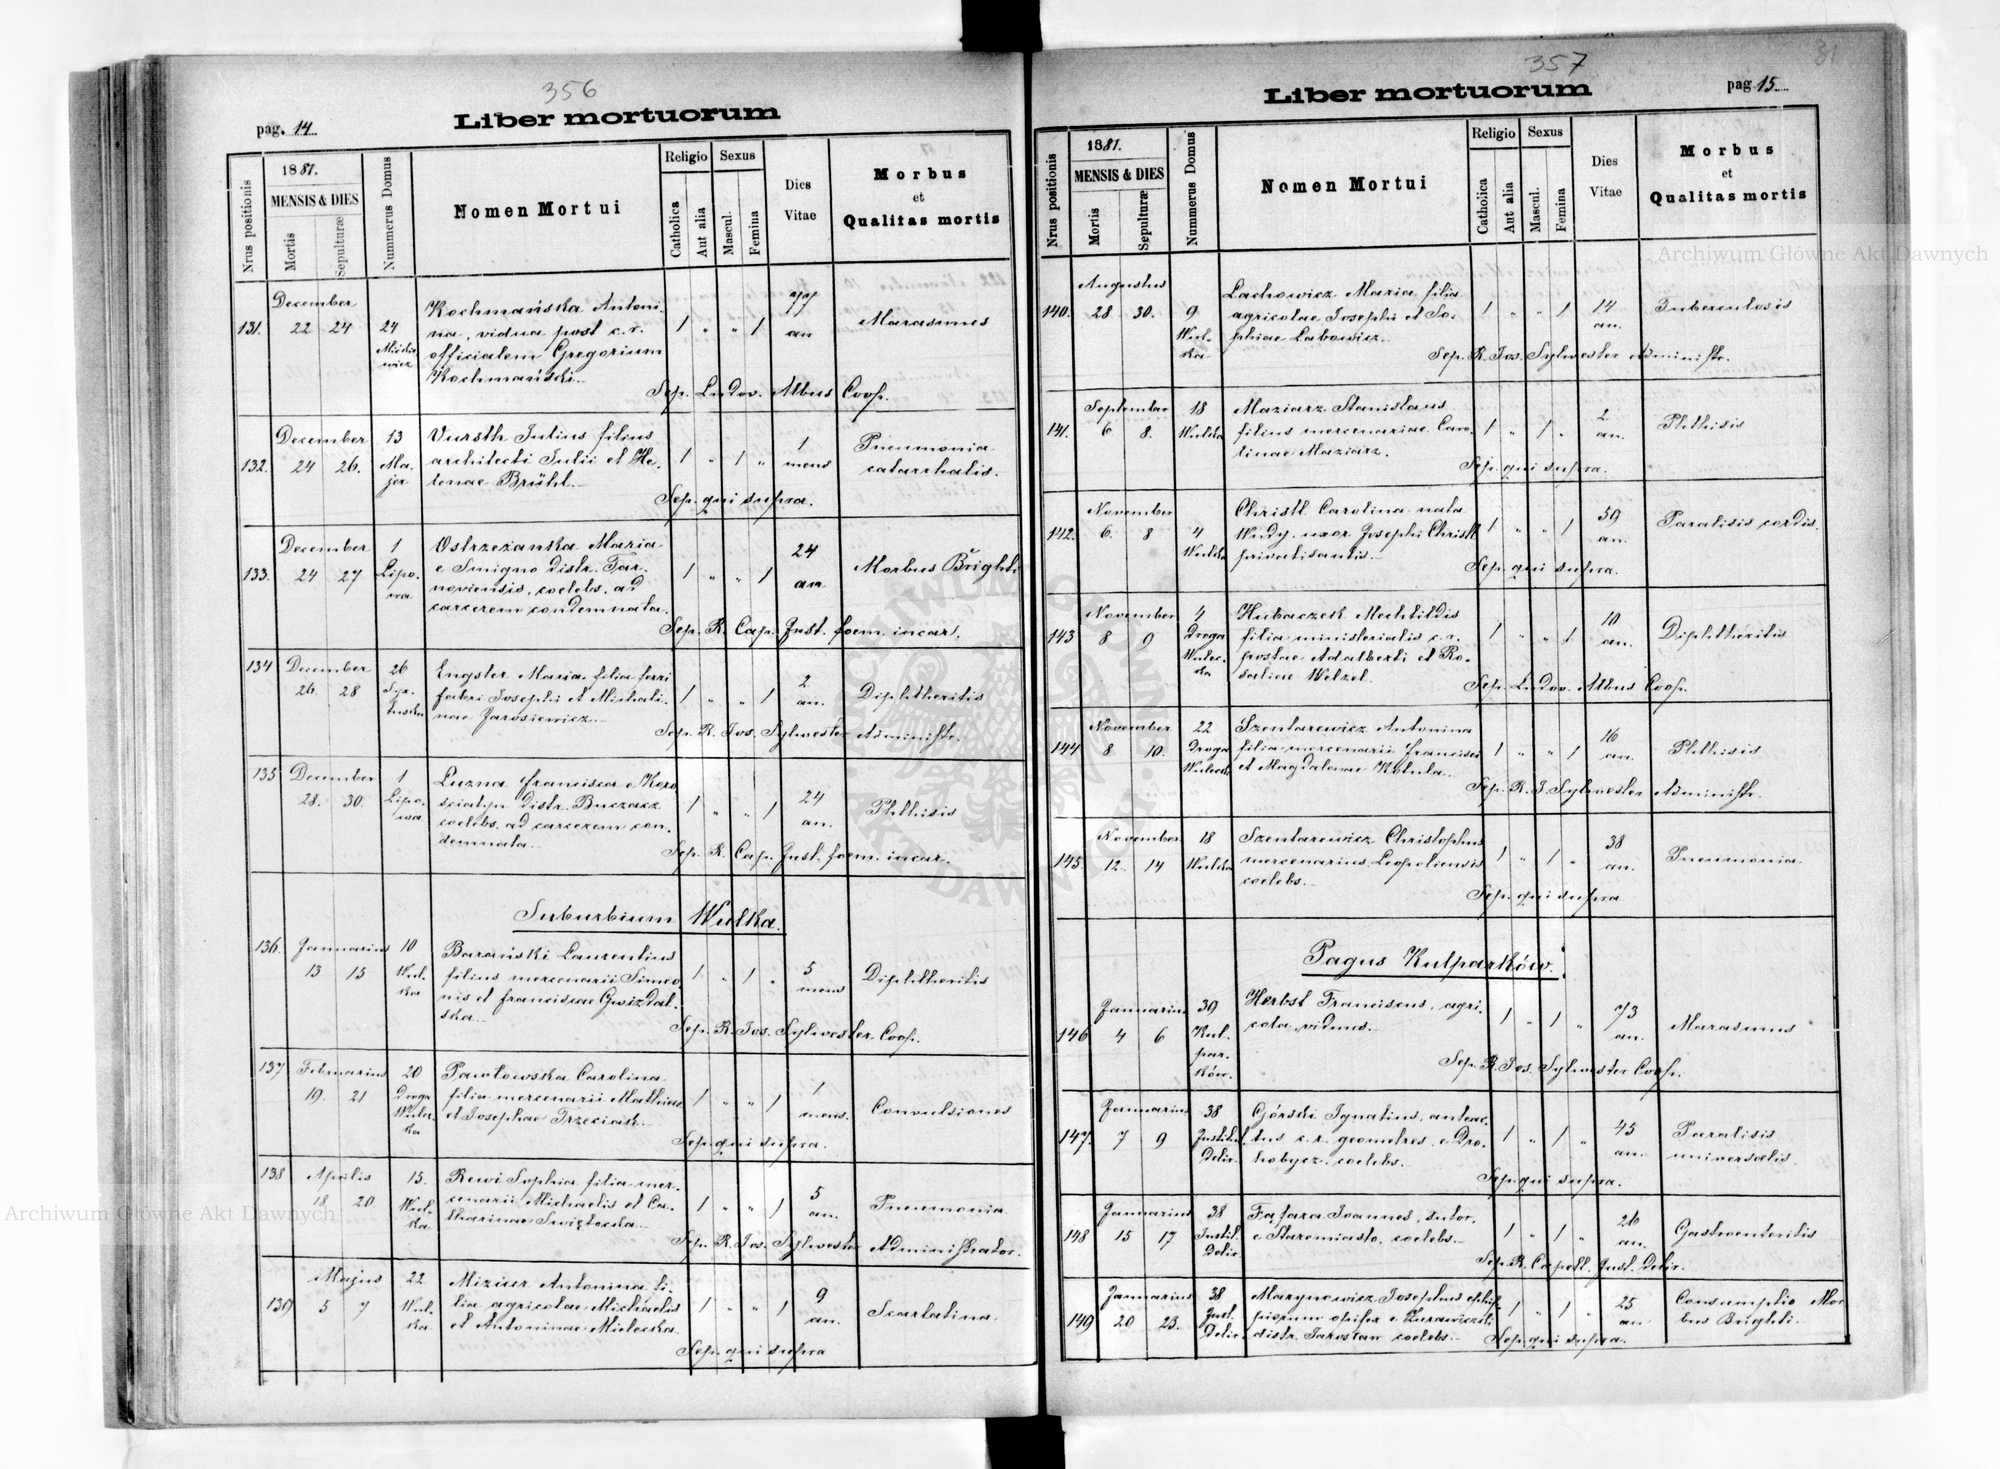 356
Liber mortuorum
pag. 14.
Nrus positionis
1881.
MENSIS & DIES
Mortis
Sepulturæ
Nummerus Domus
Nomen Mortui
Religio
Catholica
Aut alia
Sexus
Mascul.
Femina
Dies Vitae
Morbus
et
Qualitas mortis
131. December 22 24 24 Kochmańska Antoni- 1 " " 1 77 an Marasmus
na, vidua post c. r.
officialem Gregorium
Kochmański.
Sep. Ludov. Albus Coop.
132. December 24 26. 13 Ma- Vursth Julius filius 1 " 1 " 1 mens Pneumonia
jer architecti Julii et He- catarrhalis.
lenae Brühl.
Sep. qui supra.
133. December 24 27 1 Lipo- Ostrzeżanka Maria 1 " " 1 24 an Morbus Brighti
wa e Smigno distr. Tar-
noviensis, coelebs, ad
carcerem condemnata.
Sep. R. Cap. Inst. foem. incar.
134 December 26. 28 26 Engster Maria filia ferri 1 " " 1 2 an. Diphtheritis
fabri Josephi et Michali-
nae Jarosiewicz
Sep. R. Jos. Sylwester Administr.
135 December 28. 30. 1 Lipo- Luzna Francisca e Koro 1 " " 1 24 an. Phthisis
wa sciatyn distr. Buczacz
coelebs, ad carcerem con-
demnata
Sep. R. Cap. Inst. foem. incar.
Suburbium Wulka.
136. Januarius 13 15 10 Wul- Barański Laurentius 1 " 1 " 5 mens Diphtheritis
ka filius mercenarii Simeo
nis et Franciscae Gwizdal-
ska
Sep. R. Jos. Sylwester Coop.
137 Februarius 19. 21 20 Droga Pawłowska Carolina 1 " " 1 1 mens. Convulsiones
Wulec- filia mercenarii Mathiae
ka et Josephae Trzeciak
Sep. qui supra.
138 Aprilis 18 20. 15. Wul- Rewi Sophia filia mer- 1 " " 1 5 an. Pneumonia
ka cenarii Michaelis et Ca-
tharinae Swięтecka
Sep. R. Jos. Sylwester Administrator.
139 Majus 5 7 22 Wul- Miziur Antonina fi- 1 " " 1 9 an. Scarlatina
ka lia agricolae Michaelis
et Antoninae Mielecka
Sep. qui supra
357
31
Liber mortuorum
pag 15.
Nrus positionis
1881.
MENSIS & DIES
Mortis
Sepulturæ
Nummerus Domus
Nomen Mortui
Religio
Catholica
Aut alia
Sexus
Mascul.
Femina
Dies Vitae
Morbus
et
Qualitas mortis
140. Augustus 28 30. 9 Wul- Lachowicz Maria filia 1 " " 1 14 an. Tuberculosis
ka agricolae Josephi et So-
phiae Labowicz
Sep. R. Jos. Sylwester Administr.
141. September 6 8. 18 Wulka Maziarz Stanislaus 1 " 1 " 2 an. Phthisis
filius mercenariae Caro-
linae Maziarz.
Sep. qui supra.
142. November 6. 8 4 Wulka Christl Carolina nata 1 " " 1 59 an. Paralisis cordis.
Wudy, uxor Josephi Christl
privatisantis
Sep. qui supra.
143 November 8 9 4 Droga Hubaczek Mechtildis 1 " " 1 10 an. Diphtheritis
Wulec- filia ministerialis c. r.
ka postae Adalberti et Ro-
saliae Welzel.
Sep. Ludov. Albus Coop.
144 November 8 10. 22 Droga Szentarewicz Antonina 1 " " 1 16 an. Phthisis
filia mercenarii Francisci
et Magdalenae Kotula
Sep. R. J. Sylwester Administr.
145. November 12 14 18 Wulka Szentarewicz Christophus 1 " 1 " 38 an. Pneumonia
mercenarius Leopoliensis
coelebs.
Sep. qui supra
Pagus Kulparków.
146 Januarius 4 6 39 Kul- Herbst Franciscus, agri- 1 " 1 " 73 an. Marasmus
par- cola, viduus.
ków.
Sep. R. Jos. Sylwester Coop.
147. Januarius 7 9 38 Górski Ignatius, anteac- 1 " 1 " 45 an. Paralisis
Delir. tus c. r. geometres, e Dro- universalis.
hobycz, coelebs.
Sep. qui supra.
148 Januarius 15 17 38 Instit. Fafara Joannes, sutor, 1 " 1 " 26 an. Gastroenteritis
Delir e Staremiasto, coelebs
Sep. R. Capell. Inst. Delir.
149 Januarius 20 23. 38 Inst. Marynowicz Josephus ephip- 1 " 1 " 25 an Consumptio Mor
Delir piorum opifex e Zurawiczki bus Brighti.
distr. Jaroslau coelebs
Sep. qui supra.
Archiwum Główne Akt Dawnych
Archiwum Główne Akt Dawnych
ARCHIWUM GŁÓWNE AKT DAWNYCH